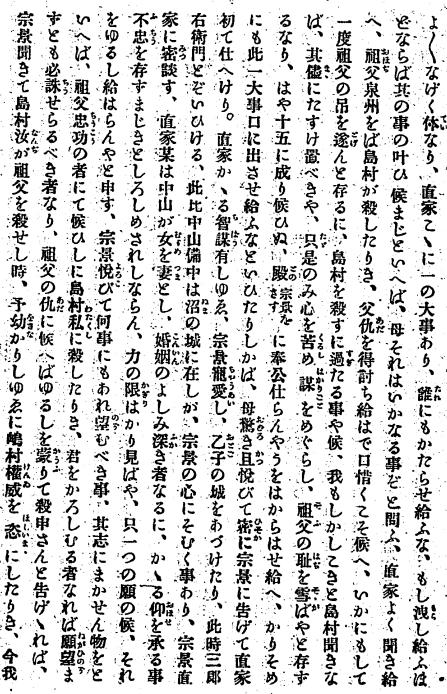 よくなげく体なり、直家こゝに一の大事あり、誰にもかたらせ給ふな、もし洩し給ふほ
どならば其の事の叶ひ候まじといへば、母それはいかなる事ぞと問ふ、直家よく聞き給
へ、祖父泉州をば島村が殺したりき、父仇を得討ち給はで口惜くこそ候へ、いかにもして
一度祖父の吊を遂んと存るに、島村を殺すに過たる事や候、我もしかしこきと島村聞きな
ば、其儘にたすけ置べきや、只是のみ心を苦め、謀をめぐらし、祖父の恥を雪ばやと存す
るなり、はや十五に成り候ひぬ、殿宗景をさすに奉公仕らんやうをはからはせ給へ、かりそめ
にも此一大事口に出させ給ふなといひたりしかば、母驚き且悦びて密に宗景に告げて直家
初て仕へけり。直家かゝる智謀有しゆゑ、宗景寵愛し、乙子の城をあづけたり、此時三郎
右衛門とぞいひける、此比中山備中は沼の城に在しが、宗景の心にそむく事あり、宗景直
家に密談す、直家某は中山が女を妻とし、婚姻のよしみ深き者なるに、かゝる仰を承る事
不忠を存すまじきとしろしめされしならん、力の限はかり見ばや、只一つの願の候、それ
をゆるし給はらんやと申す、宗景悦びて何事にもあれ望むべき事、其志にまかせん物をと
いへば、祖父忠功の者にて候ひしに島村私に殺したりき、君をかろしむる者なれば願望ま
すとも必誅せらるべき者なり、祖父の仇に候へばゆるしを蒙りて殺申さんと告げゝれば、
宗景聞きて島村汝が祖父を殺せし時、予幼かりしゆゑに嶋村權威を恣にしたりき、今我